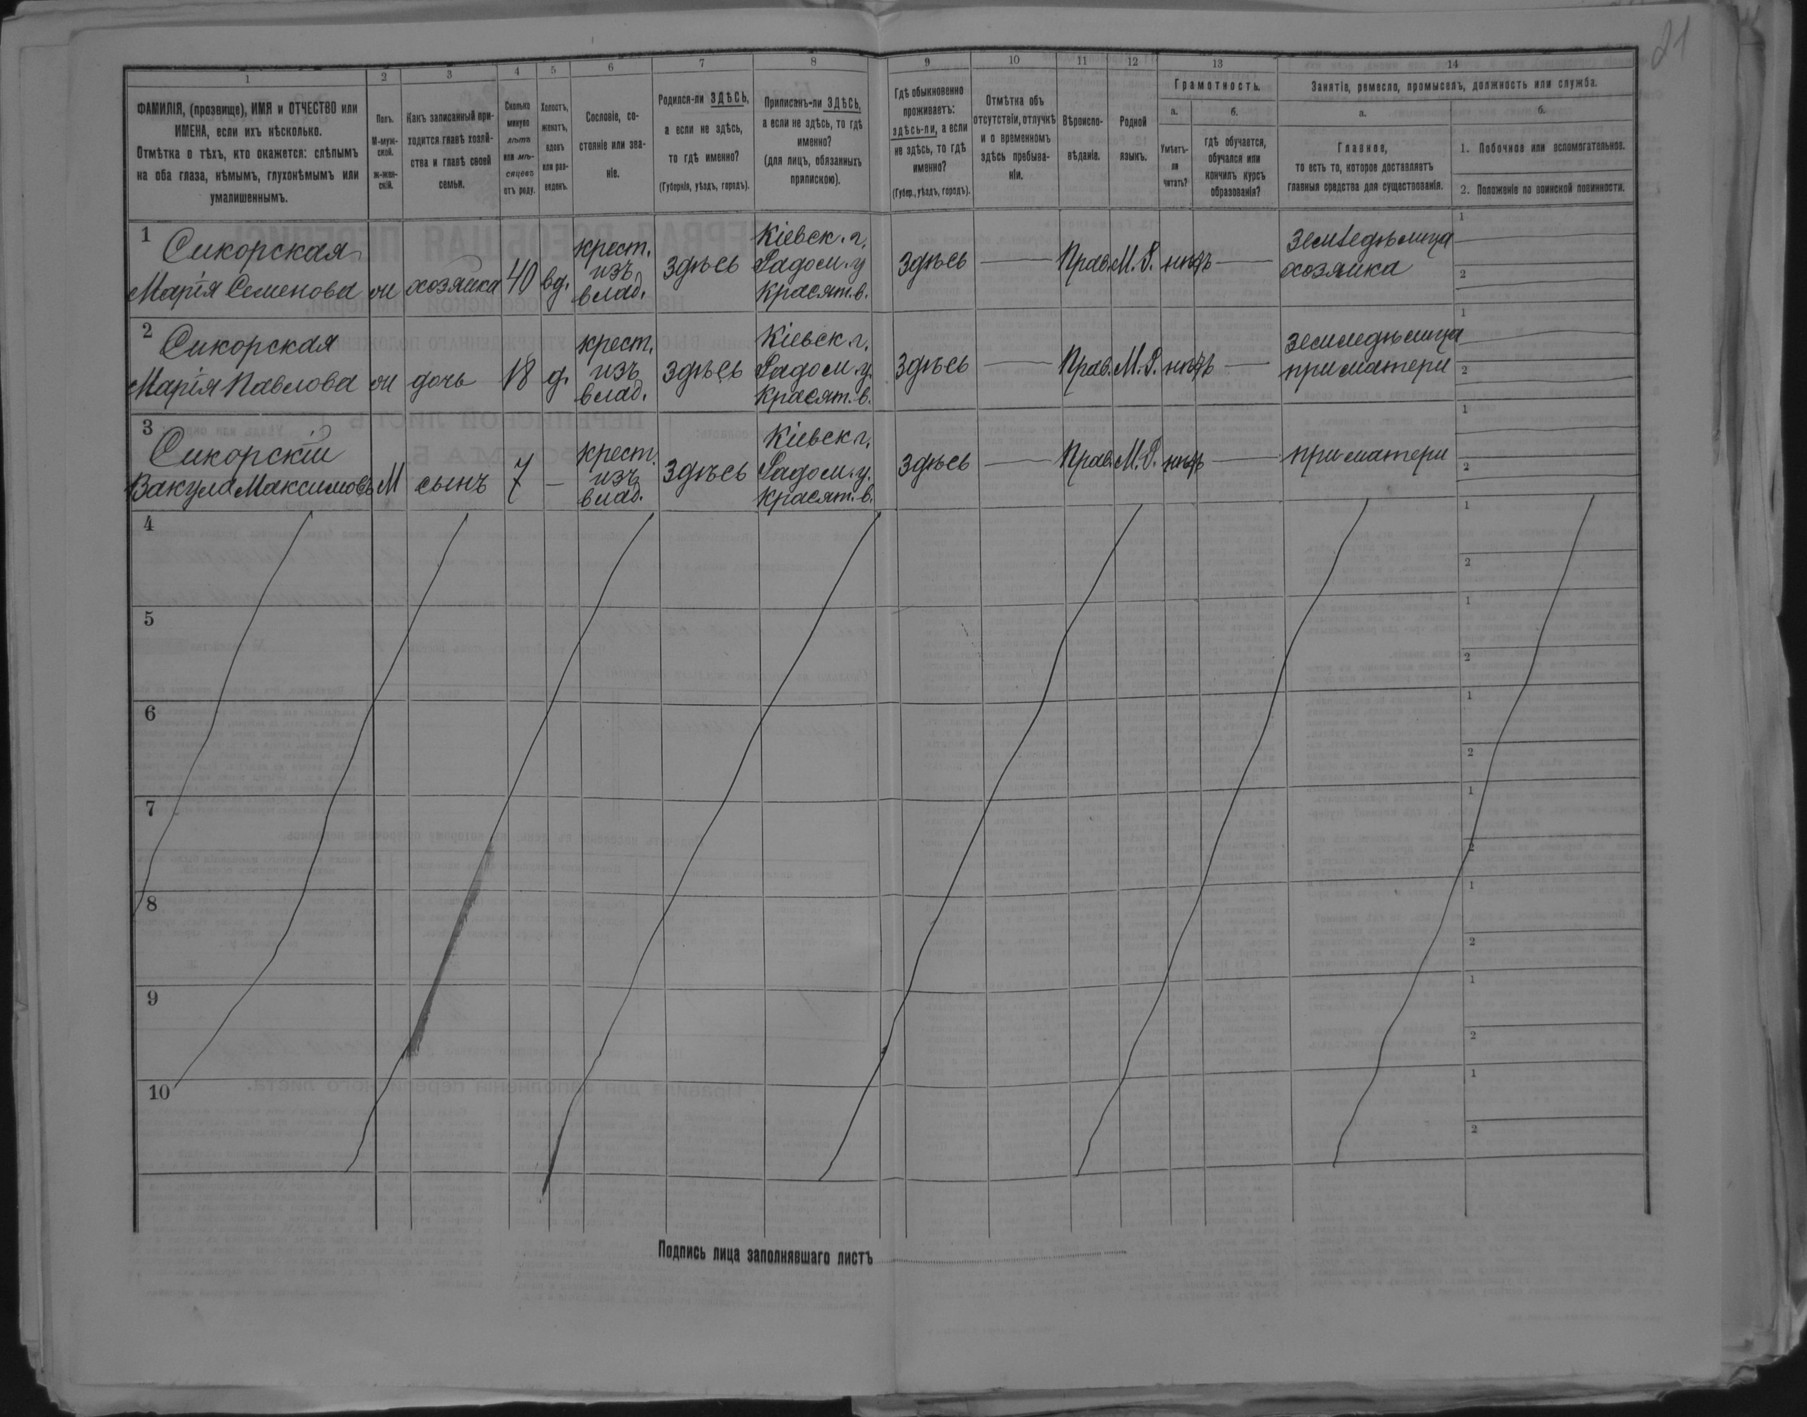 21
1 2 3 4 5 6 7 8 9 10 11 12 13 14
ФАМИЛІЯ, (прозвище), ИМЯ и ОТЧЕСТВО или
ИМЕНА, если ихъ нѣсколько.
Отмѣтка о тѣхъ, кто окажется: слѣпымъ
на оба глаза, нѣмымъ, глухонѣмымъ или
умалишеннымъ.
Полъ.
М-муж-
ской.
Ж-жен-
скій.
Какъ записанный при-
ходится главѣ хозяй-
ства и главѣ своей
семьи.
Сколько
минуло
лѣтъ
или мѣ-
сяцевъ
отъ роду.
Холостъ,
женатъ,
вдовъ
или раз-
веденъ.
Сословіе, со-
стояніе или зва-
ніе.
Родился-ли ЗДѢСЬ,
а если не здѣсь,
то гдѣ именно?
(Губернія, уѣздъ, городъ).
Приписанъ-ли ЗДѢСЬ,
а если не здѣсь, то гдѣ
именно?
(для лицъ, обязанныхъ
припискою).
Гдѣ обыкновенно
проживаетъ:
здѣсь-ли, а если
не здѣсь, то гдѣ
именно?
(Губер., уѣздъ, городъ).
Отмѣтка объ
отсутствіи, отлучкѣ
и о временномъ
здѣсь пребыва-
ніи.
Вѣроиспо-
вѣданіе.
Родной
языкъ.
Грамотность.
а.
Умѣетъ-
ли
читать?
б.
гдѣ обучается,
обучался или
кончилъ курсъ
образованія?
Занятіе, ремесло, промыселъ, должность или служба.
а.
Главное,
то есть то, которое доставляетъ
главныя средства для существованія.
б.
1. Побочное или вспомогательное.
2. Положеніе по воинской повинности.
1 Сикорская
Марія Семенова
ж хозяйка 40 вд.
крест.
изъ
влад.
здѣсь
Кіевск. г.
Радом. у.
Красят. в.
здѣсь — Прав. М. Р. нѣтъ —
земледѣлица
хозяйка
1
2
2 Сикорская
Марія Павлова
ж дочь 18 д.
крест.
изъ
влад.
здѣсь
Кіевск г.
Радом. у.
Красят. в.
здѣсь — Прав. М. Р. нѣтъ —
земледѣлица
при матери
1
2
3 Сикорскій
Вакула Максимовъ
М сынъ 7 —
крест.
изъ
влад.
здѣсь
Кіевск г.
Радом. у.
Красят. в.
здѣсь — Прав. М. Р. нѣтъ —
при матери
1
2
4
1
2
5
1
2
6
1
2
7
1
2
8
1
2
9
1
2
10
1
2
Подпись лица заполнявшаго листъ